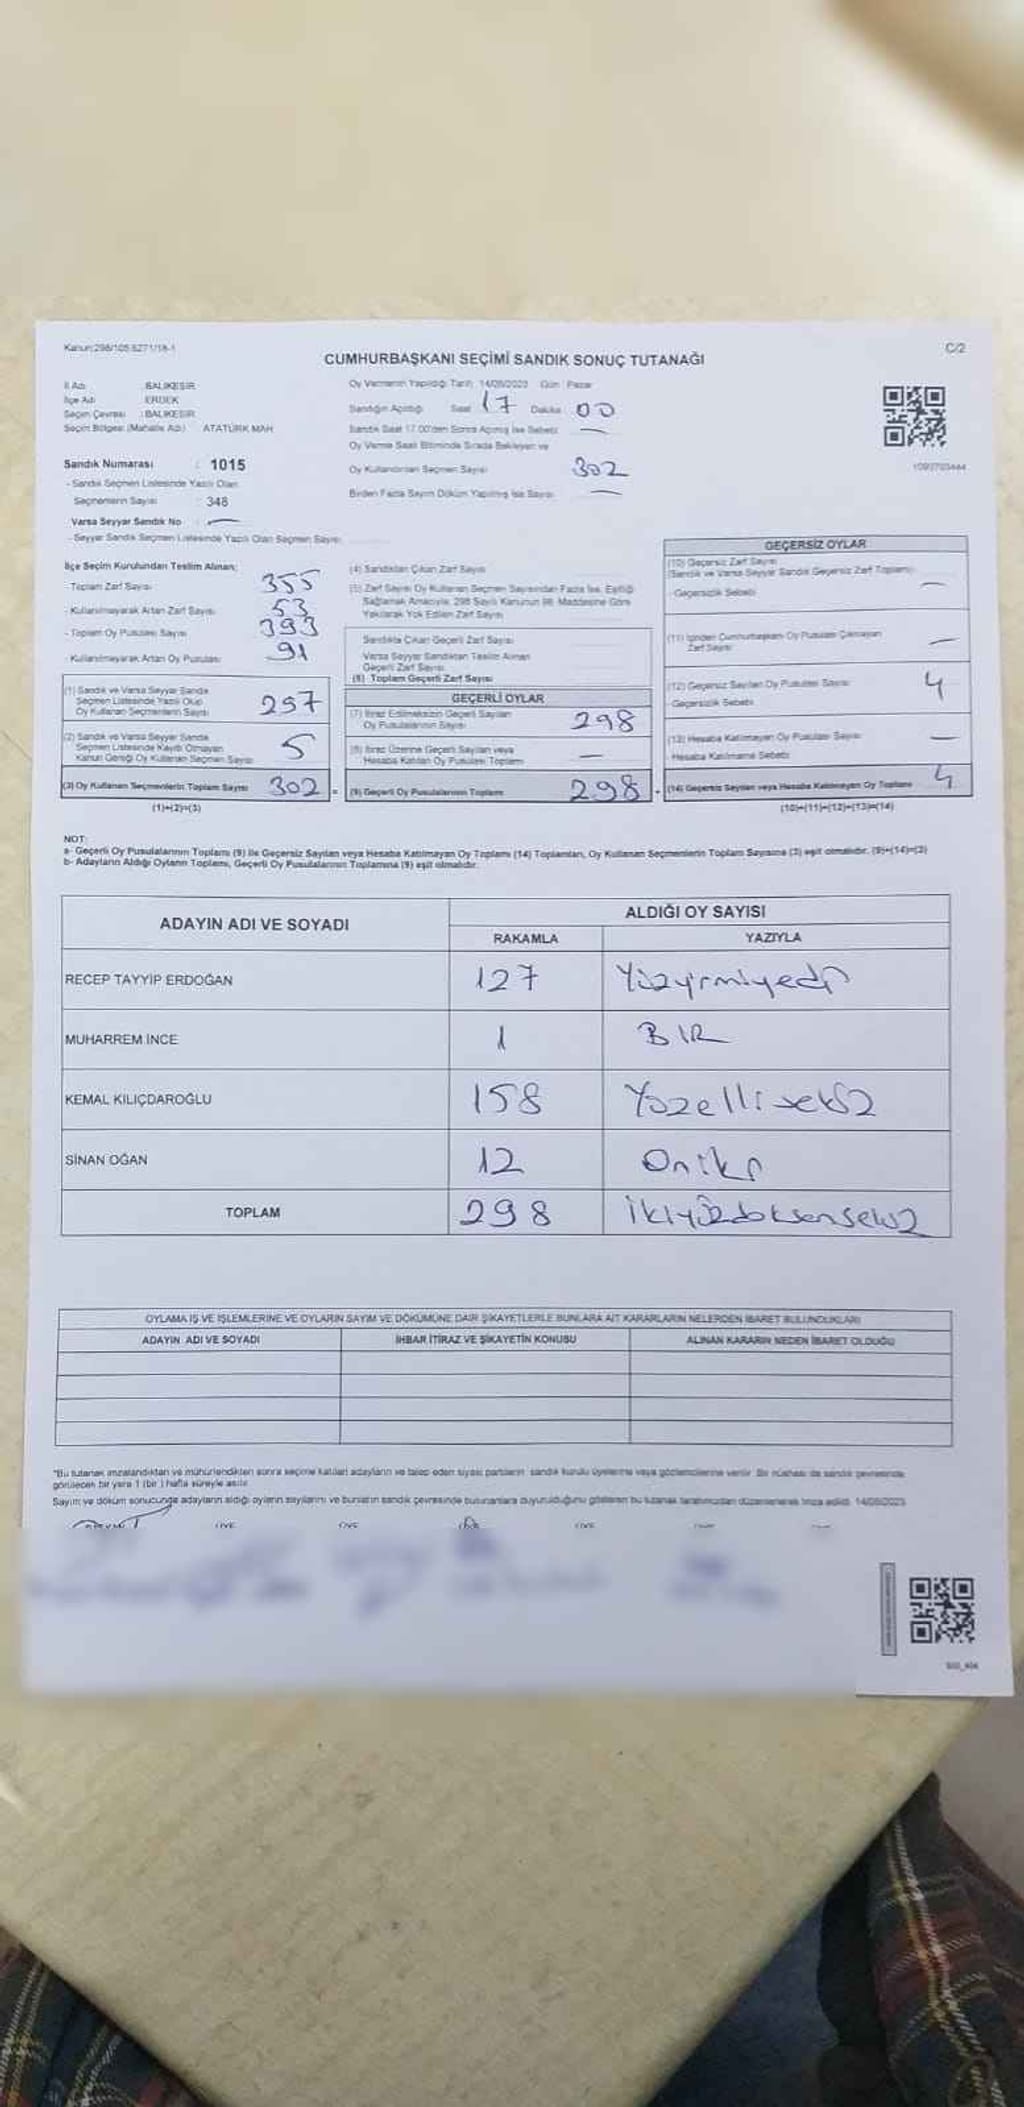 Kanun:298/105 6271/18-1
C/2
CUMHURBAŞKANI SEÇİMİ SANDIK SONUÇ TUTANAĞI
İl Adı : BALIKESİR
İlçe Adı : ERDEK
Seçim Çevresi : BALIKESİR
Seçim Bölgesi (Mahalle Adı) ATATÜRK MAH
Sandık Numarası : 1015
- Sandık Seçmen Listesinde Yazılı Olan
Seçmenlerin Sayısı : 348
Varsa Seyyar Sandık No : —
- Seyyar Sandık Seçmen Listesinde Yazılı Olan Seçmen Sayısı
Oy Vermenin Yapıldığı Tarih 14/05/2023 Gün Pazar
Sandığın Açıldığı Saat 17 Dakika 00
Sandık Saat 17.00'den Sonra Açılmış İse Sebebi —
Oy Verme Saati Bitiminde Sırada Bekleyen ve
Oy Kullandırılan Seçmen Sayısı 302
Birden Fazla Sayım Döküm Yapılmış İse Sayısı —
İlçe Seçim Kurulundan Teslim Alınan;
- Toplam Zarf Sayısı 355
- Kullanılmayarak Artan Zarf Sayısı 53
- Toplam Oy Pusulası Sayısı 393
- Kullanılmayarak Artan Oy Pusulası 91
(1) Sandık ve Varsa Seyyar Sandık
Seçmen Listesinde Yazılı Olup
Oy Kullanan Seçmenlerin Sayısı 297
(2) Sandık ve Varsa Seyyar Sandık
Seçmen Listesinde Kayıtlı Olmayan
Kanun Gereği Oy Kullanan Seçmen Sayısı 5
(3) Oy Kullanan Seçmenlerin Toplam Sayısı 302 =
(1)+(2)=(3)
(4) Sandıktan Çıkan Zarf Sayısı
(5) Zarf Sayısı Oy Kullanan Seçmen Sayısından Fazla İse, Eşitliği
Sağlamak Amacıyla, 298 Sayılı Kanunun 98. Maddesine Göre
Yakılarak Yok Edilen Zarf Sayısı
Sandıkta Çıkan Geçerli Zarf Sayısı
Varsa Seyyar Sandıktan Teslim Alınan
Geçerli Zarf Sayısı
(6) Toplam Geçerli Zarf Sayısı
GEÇERLİ OYLAR
(7) İtiraz Edilmeksizin Geçerli Sayılan
Oy Pusulalarının Sayısı 298
(8) İtiraz Üzerine Geçerli Sayılan veya
Hesaba Katılan Oy Pusulası Toplamı —
(9) Geçerli Oy Pusulalarının Toplamı 298 +
GEÇERSİZ OYLAR
(10) Geçersiz Zarf Sayısı
(Sandık ve Varsa Seyyar Sandık Geçersiz Zarf Toplamı) —
- Geçersizlik Sebebi
(11) İçinden Cumhurbaşkanı Oy Pusulası Çıkmayan
Zarf Sayısı —
(12) Geçersiz Sayılan Oy Pusulası Sayısı 4
Geçersizlik Sebebi
(13) Hesaba Katılmayan Oy Pusulası Sayısı —
- Hesaba Katılmama Sebebi
(14) Geçersiz Sayılan veya Hesaba Katılmayan Oy Toplamı 4
(10)+(11)+(12)+(13)=(14)
NOT:
a- Geçerli Oy Pusulalarının Toplamı (9) ile Geçersiz Sayılan veya Hesaba Katılmayan Oy Toplamı (14) Toplamları, Oy Kullanan Seçmenlerin Toplam Sayısına (3) eşit olmalıdır. (9)+(14)=(3)
b- Adayların Aldığı Oyların Toplamı, Geçerli Oy Pusulalarının Toplamına (9) eşit olmalıdır.
ADAYIN ADI VE SOYADI
ALDIĞI OY SAYISI
RAKAMLA YAZIYLA
RECEP TAYYİP ERDOĞAN 127 Yüzyirmiyedi
MUHARREM İNCE 1 BİR
KEMAL KILIÇDAROĞLU 158 Yüzellisekiz
SİNAN OĞAN 12 Oniki
TOPLAM 298 İkiyüzdoksensekiz
OYLAMA İŞ VE İŞLEMLERİNE VE OYLARIN SAYIM VE DÖKÜMÜNE DAİR ŞİKAYETLERLE BUNLARA AİT KARARLARIN NELERDEN İBARET BULUNDUKLARI
ADAYIN ADI VE SOYADI İHBAR İTİRAZ VE ŞİKAYETİN KONUSU ALINAN KARARIN NEDEN İBARET OLDUĞU
"Bu tutanak imzalandıktan ve mühürlendikten sonra seçime katılan adayların ve talep eden siyasi partilerin sandık kurulu üyelerine veya gözlemcilerine verilir. Bir nüshası da sandık çevresinde
görülecek bir yere 1 (bir) hafta süreyle asılır.
Sayım ve döküm sonucunda adayların aldığı oyların sayılarını ve bunların sandık çevresinde bulunanlara duyurulduğunu gösteren bu tutanak tarafımızdan düzenlenerek imza edildi. 14/05/2023